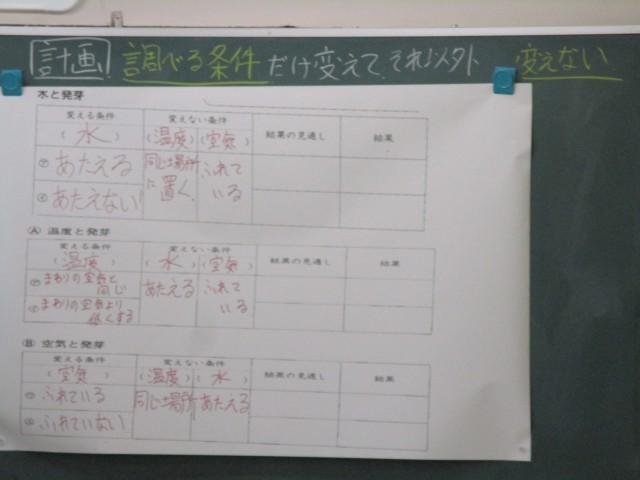 計画 調べる条件だけ変えて、それ以外 変えない
水と発芽
変える条件 変えない条件 結果の見通し 結果
(水) (温度) (空気)
㋐あたえる 同じ場所に置く ふれている
㋑あたえない
Ⓐ 温度と発芽
変える条件 変えない条件 結果の見通し 結果
(温度) (水) (空気)
まわりの空気と同じ あたえる ふれている
まわりの空気より低くする
Ⓑ 空気と発芽
変える条件 変えない条件 結果の見通し 結果
(空気) (温度) (水)
ふれている 同じ場所 あたえる
ふれていない